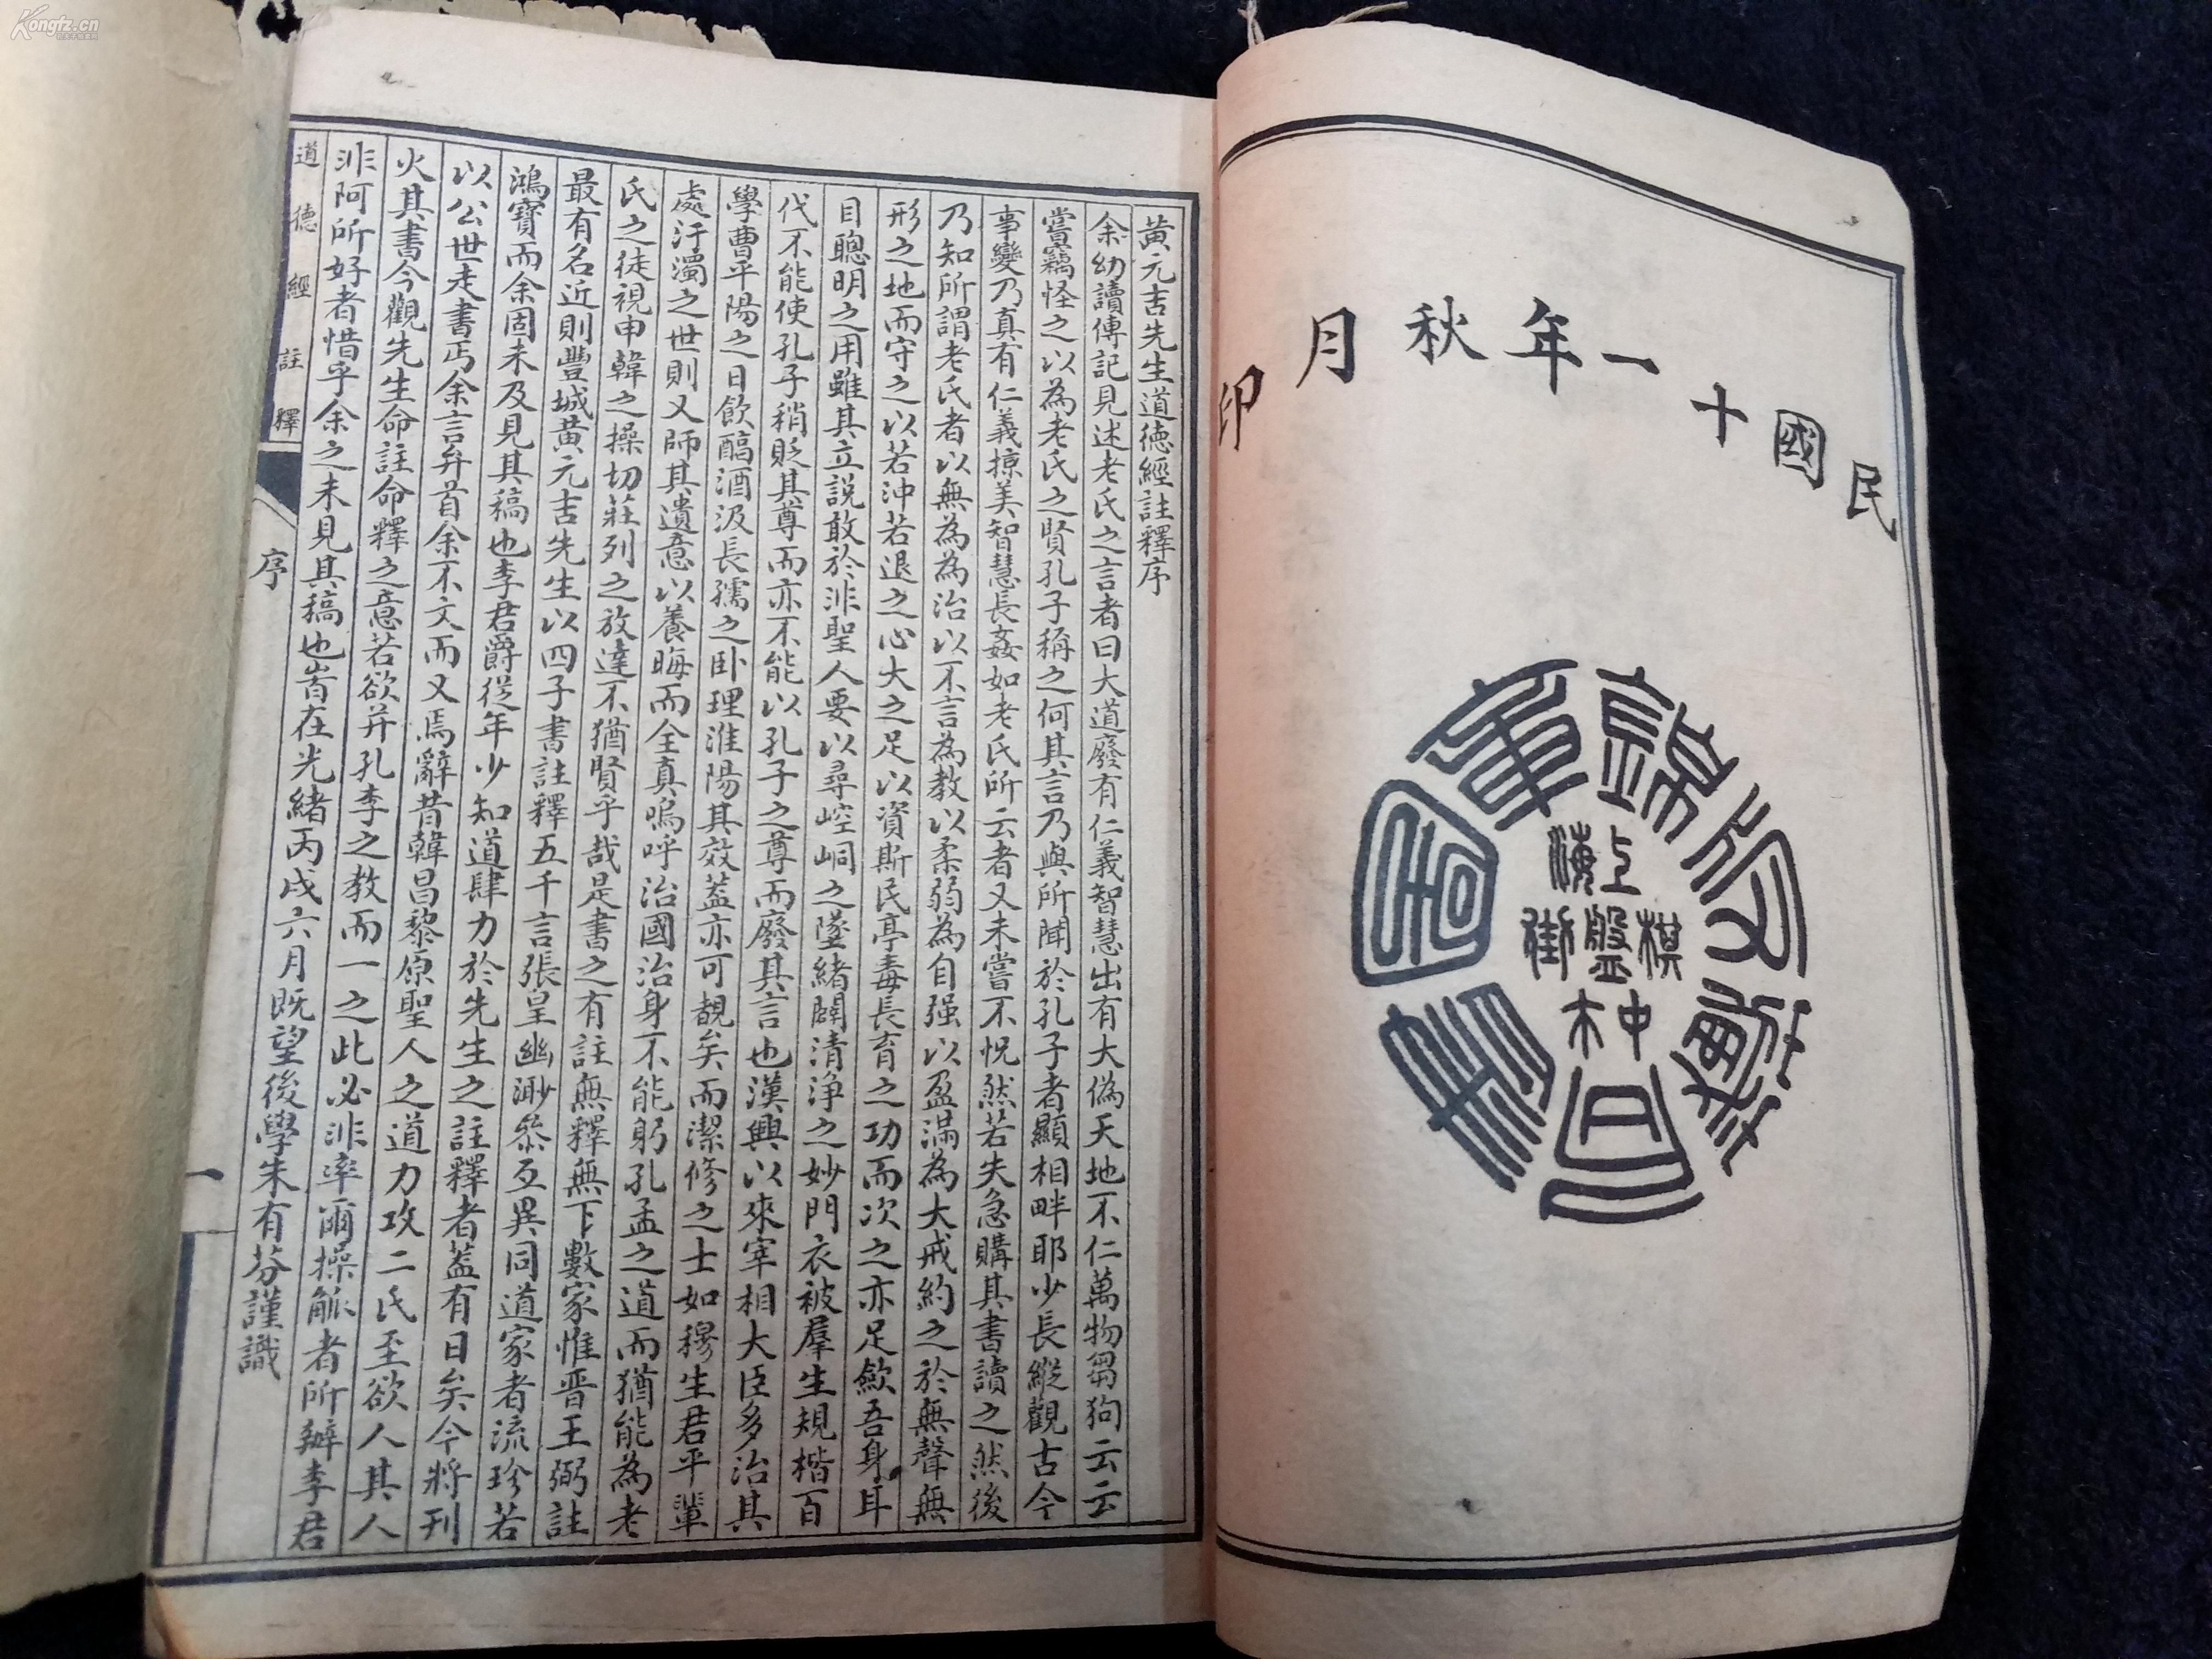 民國十一年秋月印
錦章圖書局
上海
棋盤街
中
黃元吉先生道德經註釋序
余幼讀傳記見述老氏之言者曰大道廢有仁義智慧出有大偽天地不仁萬物芻狗云云
嘗竊怪之以為老氏之賢孔子稱之何其言乃與所聞於孔子者顯相畔耶少長縱觀古今
事變乃真有仁義掠美智慧長姦如老氏所云者又未嘗不怳然若失急購其書讀之然後
乃知所謂老氏者以無為為治以不言為教以柔弱為自强以盈滿為大戒約之於無聲無
形之地而守之以若沖若退之心大之足以資斯民亭毒長育之功而次之亦足歛吾身耳
目聰明之用雖其立説敢於非聖人要以尋崆峒之墜緒闢清淨之妙門衣被羣生規楷百
代不能使孔子稍貶其尊而亦不能以孔子之尊而廢其言也漢興以來宰相大臣多治其
學曹平陽之日飲醇酒汲長孺之卧理淮陽其效蓋亦可覩矣而潔修之士如穆生君平輩
處汙濁之世則又師其遺意以養晦而全真嗚呼治國治身不能躬孔孟之道而猶能為老
氏之徒視申韓之操切莊列之放達不猶賢乎哉是書之有註無釋無下數家惟晋王弼註
最有名近則豐城黃元吉先生以四子書註釋五千言張皇幽渺叅互異同道家者流珍若
鴻寶而余固未及見其稿也李君爵從年少知道肆力於先生之註釋者蓋有日矣今將刊
以公世走書丐余言弁首余不文而又焉辭昔韓昌黎原聖人之道力攻二氏至欲人其人
火其書今觀先生命註命釋之意若欲并孔李之教而一之此必非率爾操觚者所辦李君
非阿所好者惜乎余之未見其稿也旹在光緒丙戌六月既望後學朱有芬謹識
道德經註釋
序
一
Kongfz.cn